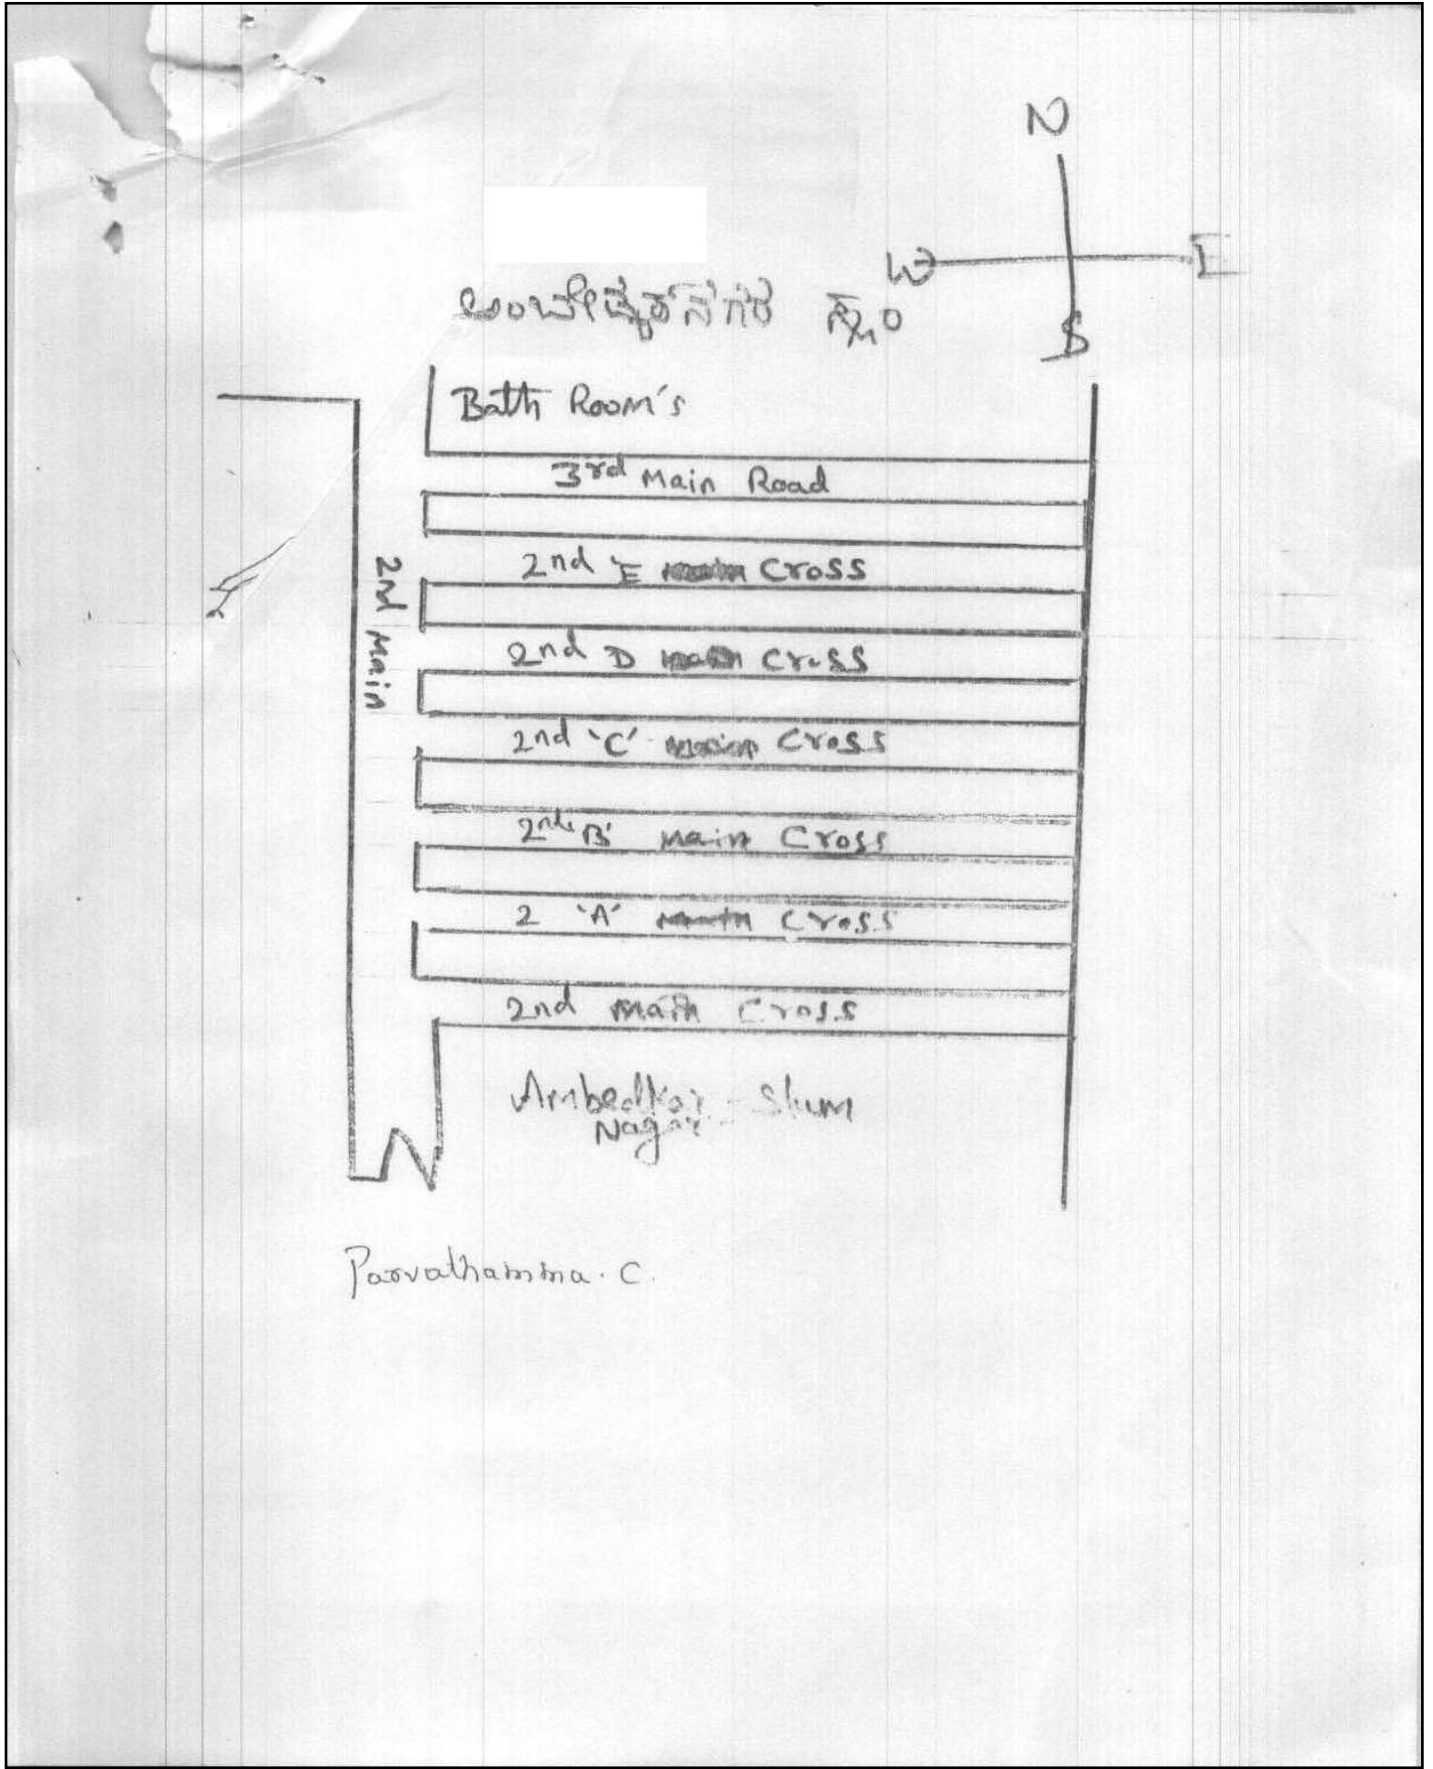 N
W E
ಅಂಬೇಡ್ಕರ್ ನಗರ ಸ್ಲಂ
S
Bath Room's
3rd Main Road
2nd 'E Cross
2nd Main
2nd D Cross
2nd 'C' Cross
2nd 'B' Main Cross
2 'A' Main Cross
2nd Main Cross
Ambedkar - Slum
Nagar
Parvathamma. C.